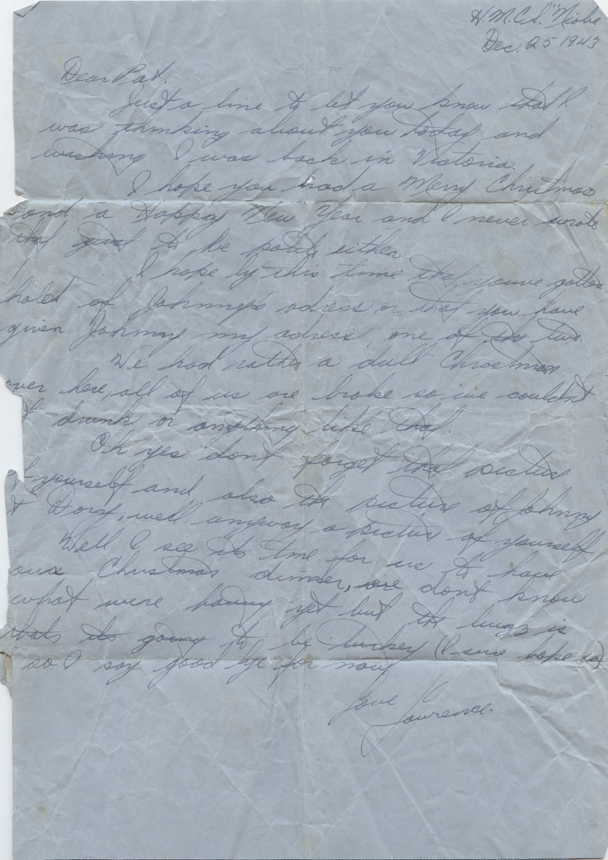 H.M.C.S. "Niobe
Dec. 25 1943
Dear Pat.
Just a line to let you know that I
was thinking about you today and
wishing I was back in Victoria.
I hope you had a Merry Christmas
and a Happy New Year and I never wrote
that just to be polite either.
I hope by this time that youve gotten
hold of Johnnys adress or that you have
given Johnny my adress, one of the two.
We had rather a dull Christmas
over here, all of us are broke so we couldnt
drunk or anything like that.
Oh yes dont forget that picture
yourself and also the picture of Johnny
& Dory, well anyway a picture of yourself
Well I see its time for us to have
our Christmas dinner, we dont know
what were having yet but the is
thats its going to be turkey (I sure hope so)
so I say good bye for now
Love
Lawrence.